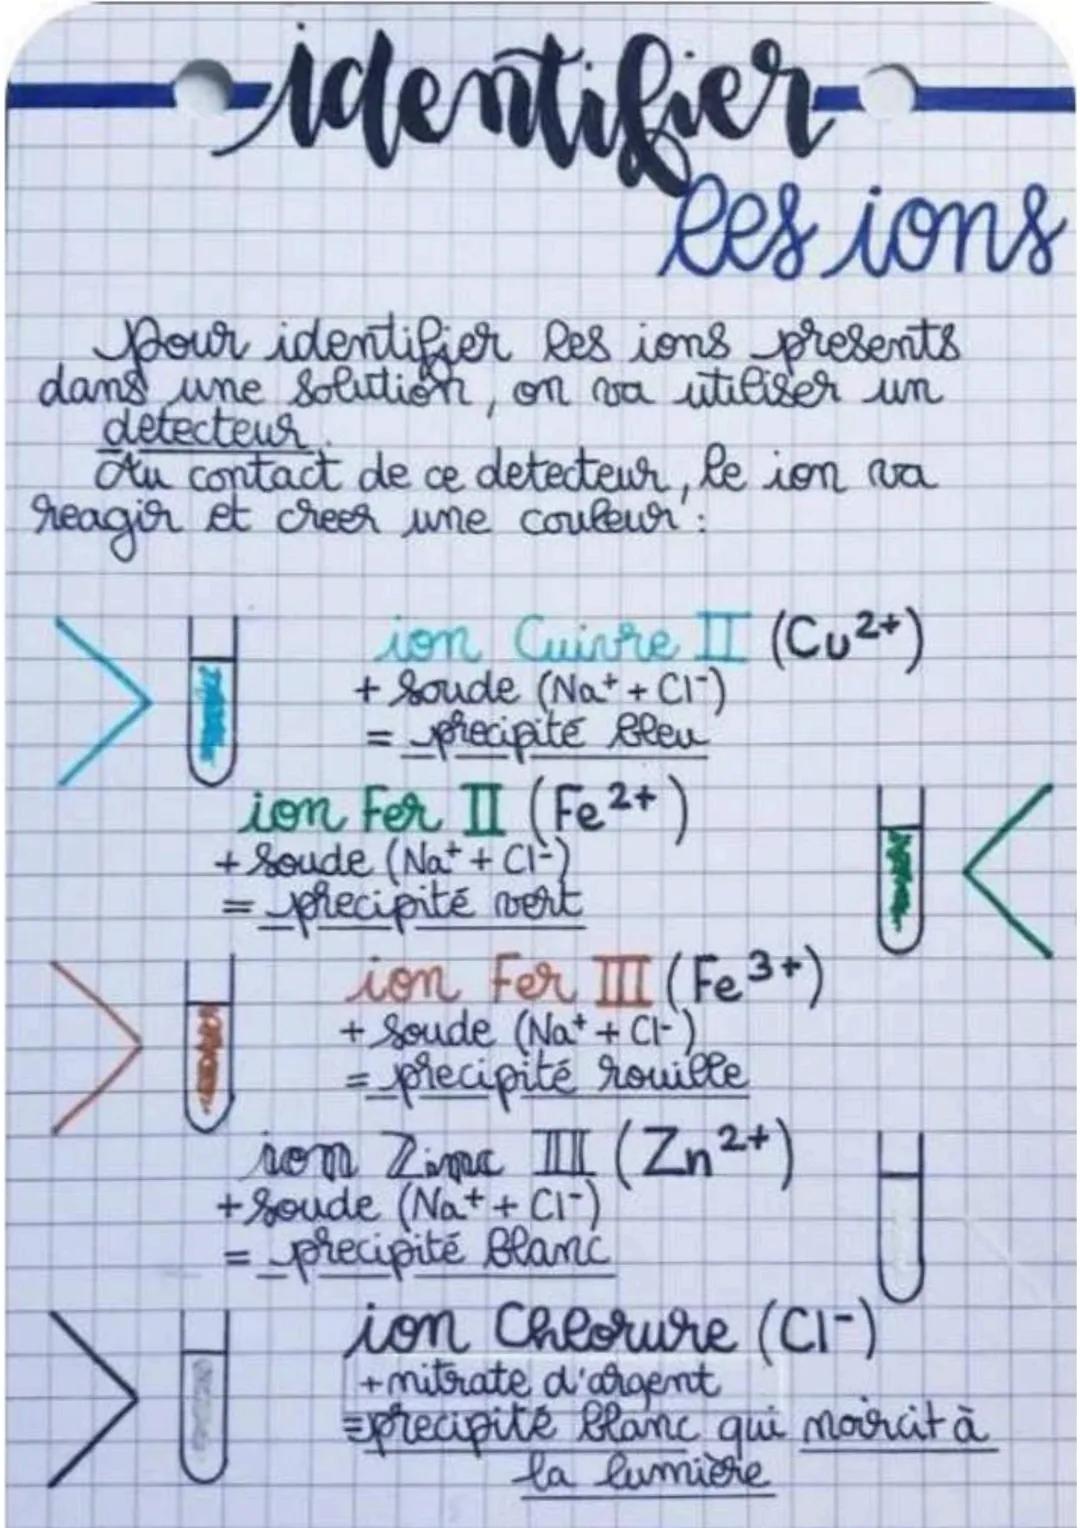 identifier
les ions
pour identifier les ions presents
dans une solution, on va utiliser un
detecteur.
Au contact de ce detecteur, le ion va
reagir et creer une couleur :
ion Cuivre II (Cu²⁺)
+ soude (Na⁺ + Cl⁻)
= precipité bleu
ion Fer II (Fe²⁺)
+ soude (Na⁺ + Cl⁻)
= precipité vert
ion Fer III (Fe³⁺)
+ soude (Na⁺ + Cl⁻)
= precipité rouille
ion Zinc III (Zn²⁺)
+ soude (Na⁺ + Cl⁻)
= precipité blanc
ion Chlorure (Cl⁻)
+ nitrate d'argent
= precipité blanc qui noircit à
la lumière